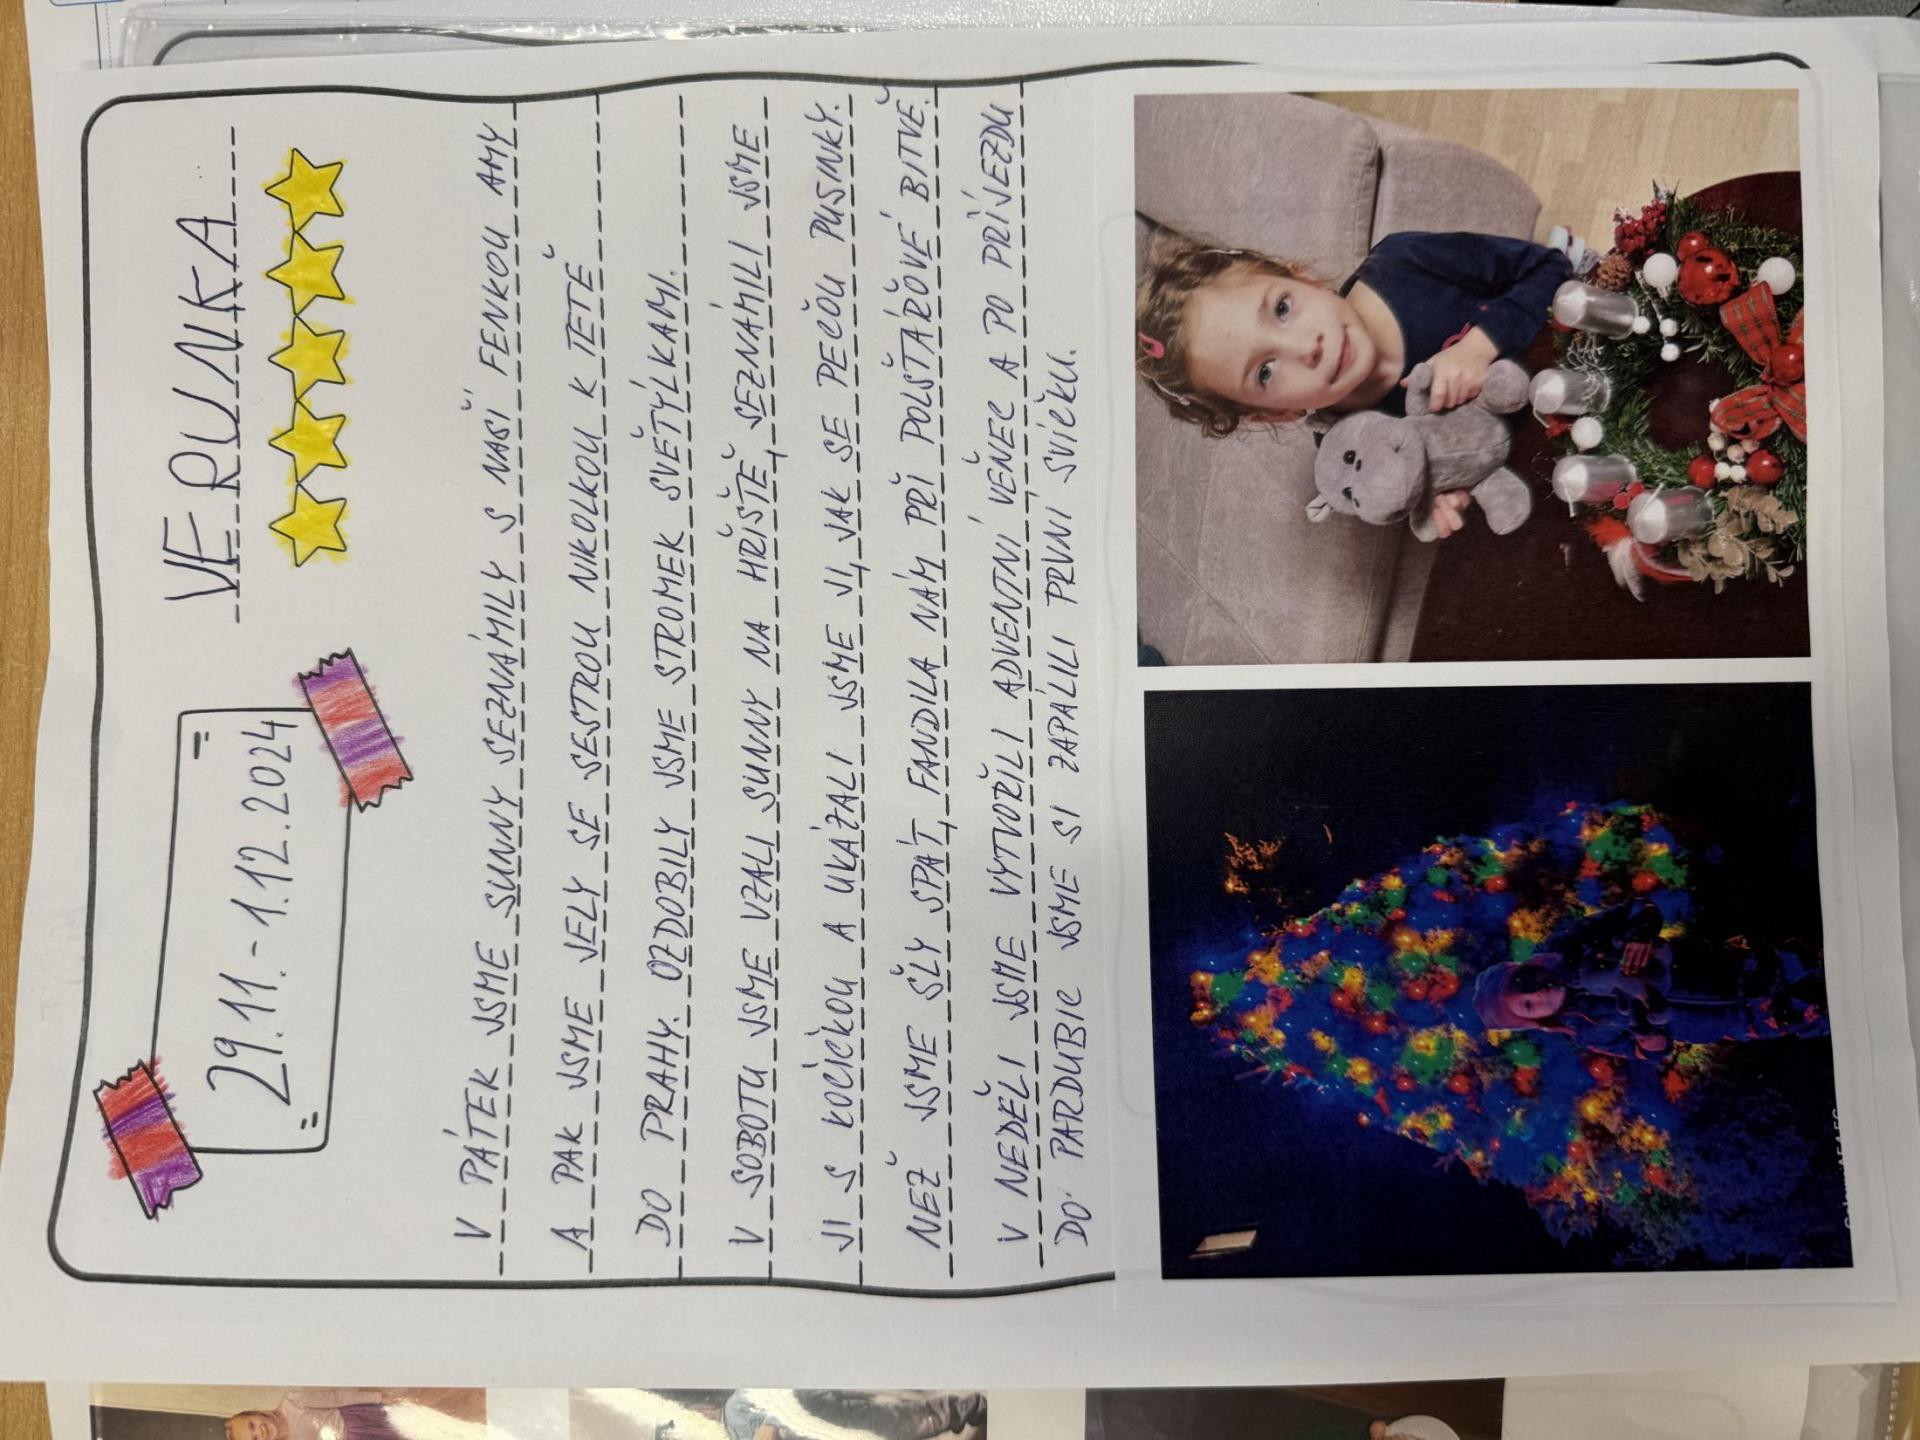 VERUNKA
29.11.-1.12.2024
V PÁTEK JSME SUNNY SEZNÁMILY S NAŠÍ FENKOU AMY
A PAK JSME JELY SE SESTROU NIKOLKOU K TETĚ
DO PRAHY. OZDOBILY JSME STROMEK SVĚTÝLKAMI.
V SOBOTU JSME VZALI SUNNY NA HŘIŠTĚ, SEZNÁMILI JSME
JI S KOČIČKOU A UKÁZALI JSME JI, JAK SE PEČOU PUSINKY.
NEŽ JSME ŠLY SPÁT, FANDILA NÁM PŘI POLŠTÁŘOVÉ BITVĚ.
V NEDĚLI JSME VYTVOŘILI ADVENTNÍ VĚNEC A PO PŘÍJEZDU
DO PARDUBIC JSME SI ZAPÁLILI PRVNÍ SVÍČKU.